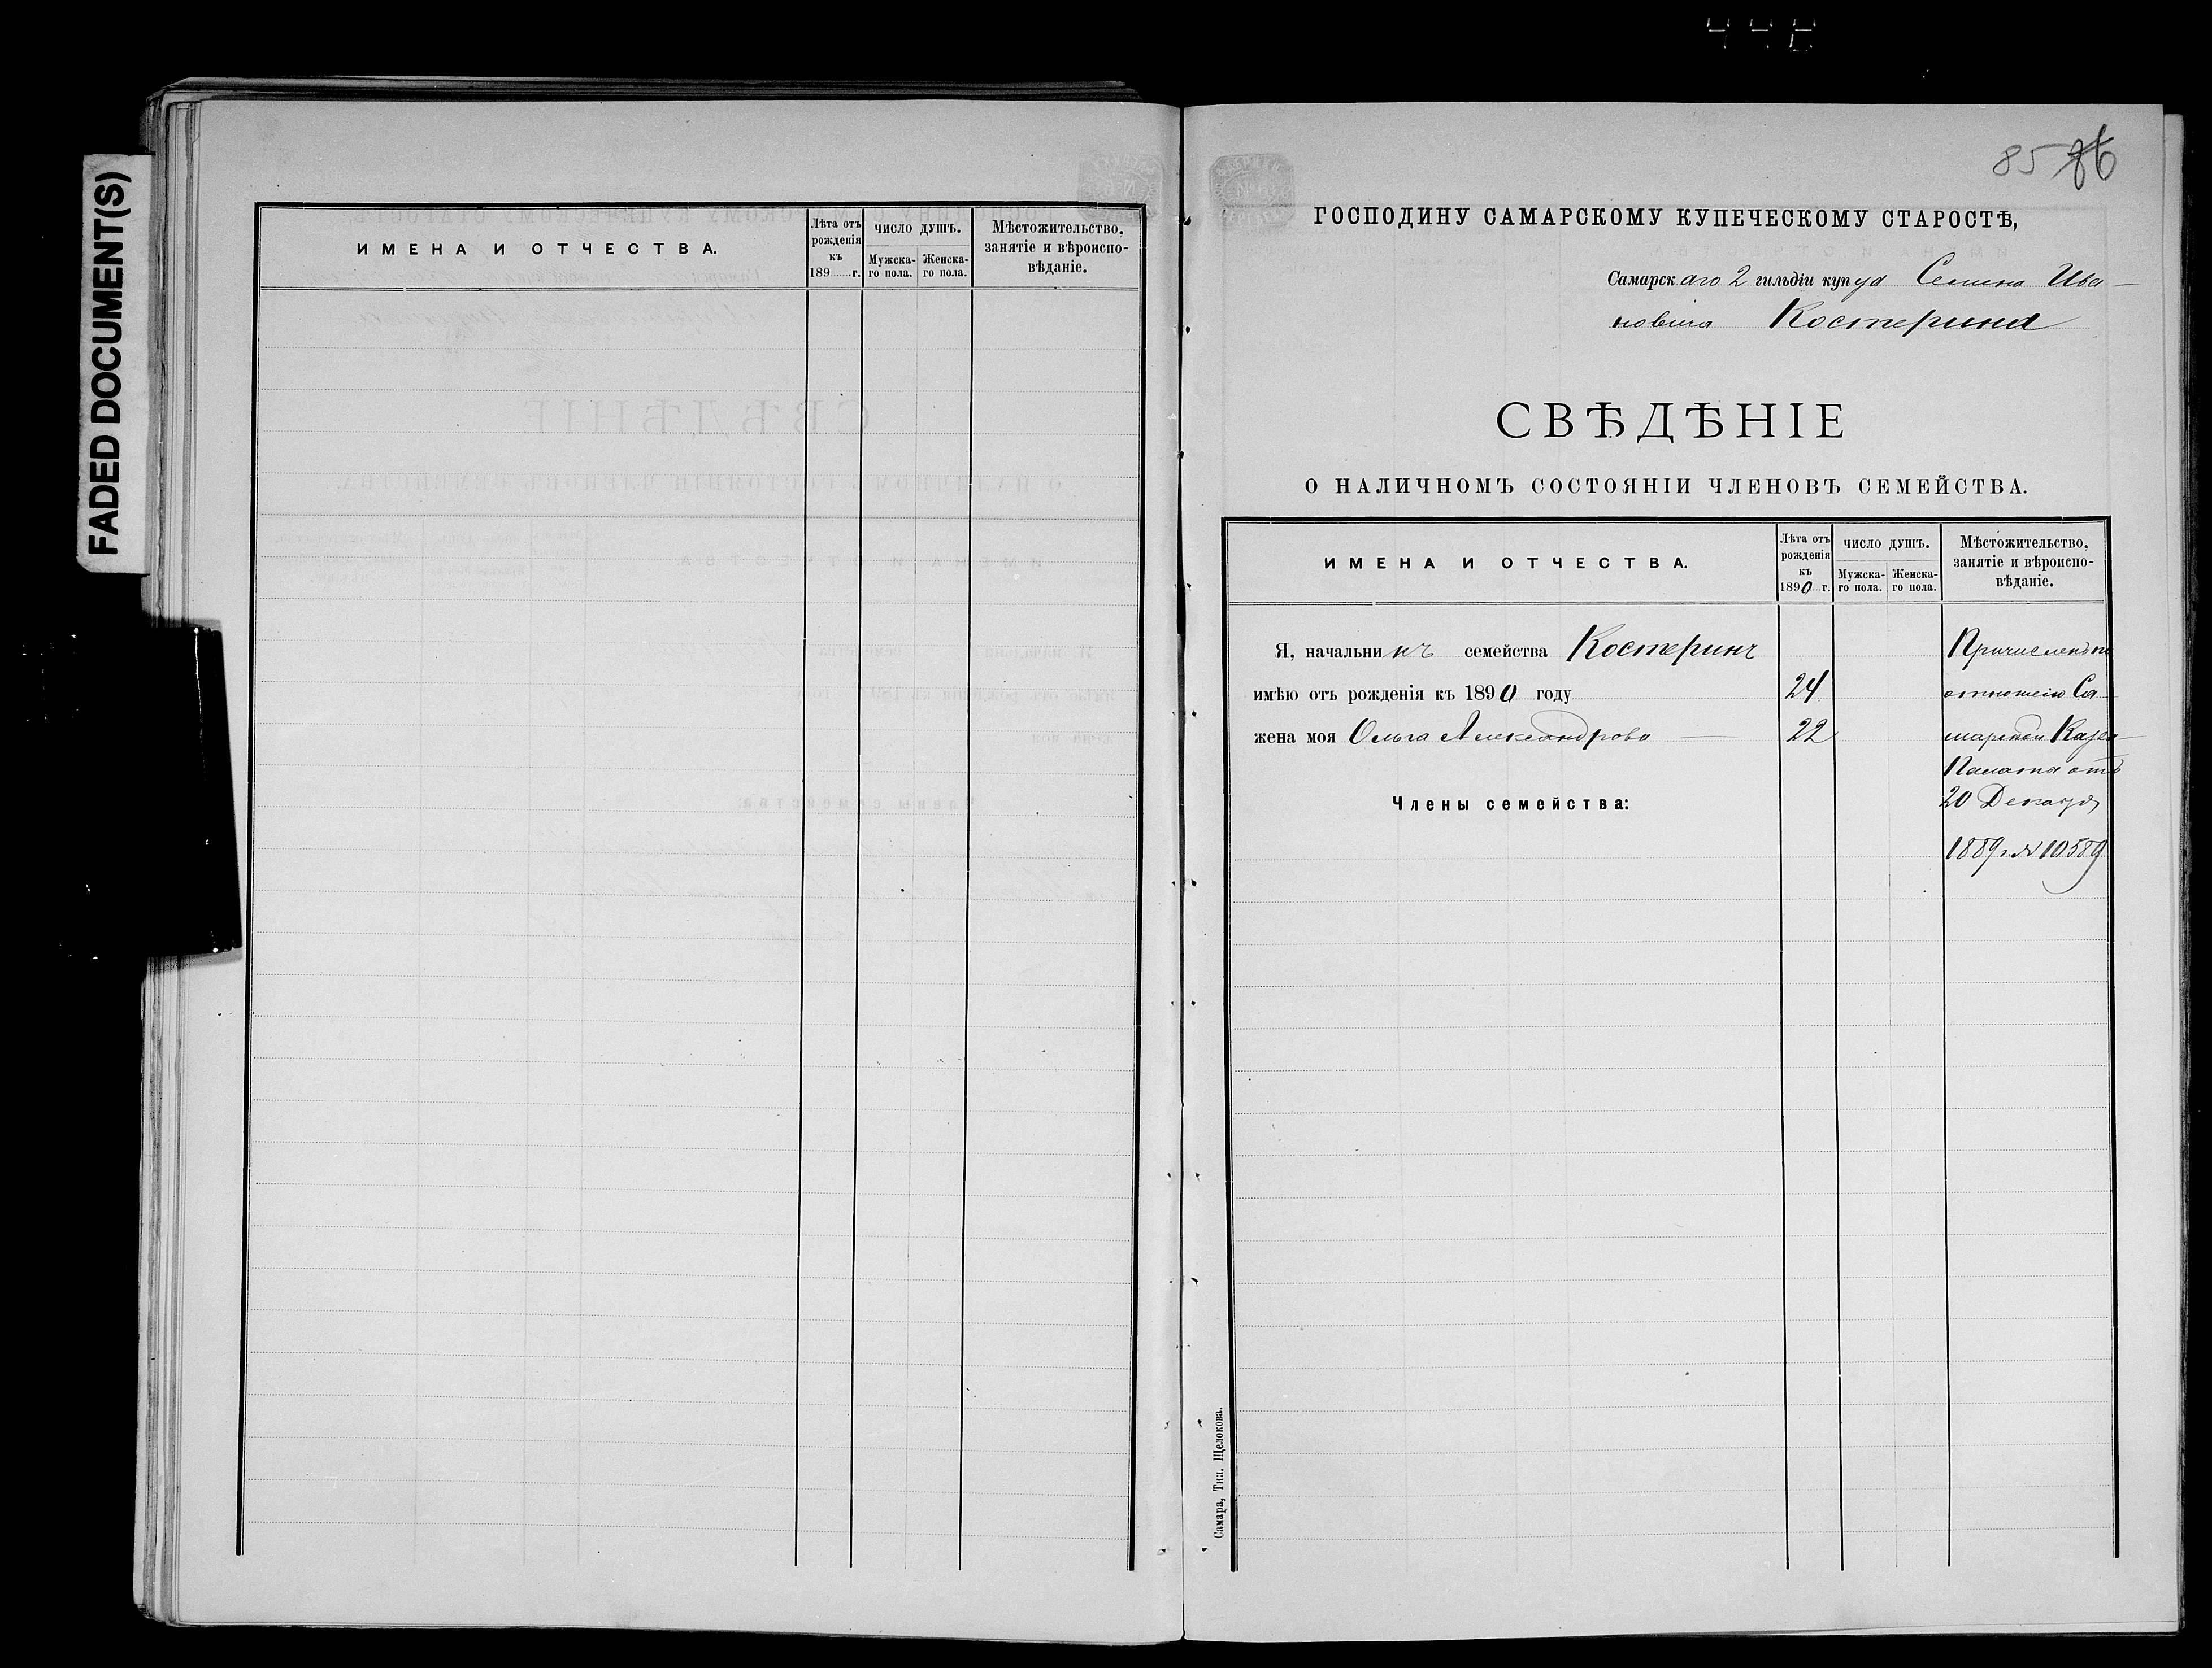 FADED DOCUMENT(S)
ИМЕНА И ОТЧЕСТВА.
Лѣта отъ рожденія къ 189 г.
ЧИСЛО ДУШЪ.
Мужска-го пола.
Женска-го пола.
Мѣстожительство, занятіе и вѣроиспо-вѣданіе.
85 86
ГОСПОДИНУ САМАРСКОМУ КУПЕЧЕСКОМУ СТАРОСТѢ,
Самарскаго 2 гильдіи купца Семена Ива-
новича Костерина
СВѢДѢНІЕ
О НАЛИЧНОМЪ СОСТОЯНІИ ЧЛЕНОВЪ СЕМЕЙСТВА.
ИМЕНА И ОТЧЕСТВА.
Лѣта отъ рожденія къ 1890 г.
ЧИСЛО ДУШЪ.
Мужска-го пола.
Женска-го пола.
Мѣстожительство, занятіе и вѣроиспо-вѣданіе.
Я, начальникъ семейства Костеринъ Причисленъ по
имѣю отъ рожденія къ 1890 году 24 отношенію Са
жена моя Ольга Александрова 22 марской Казен
Палаты отъ
Члены семейства: 20 Декабря
1889 г. № 10589
Самара, Тип. Щелокова.